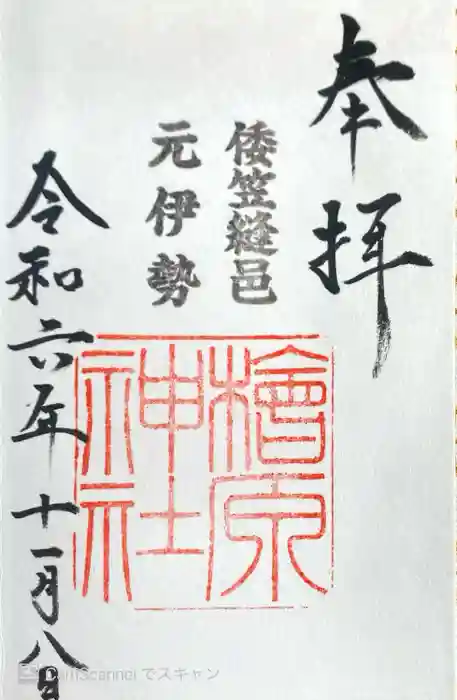 奉拝
倭笠縫邑
元伊勢
檜原神社
令和六年十一月八日
CamScanner でスキャン